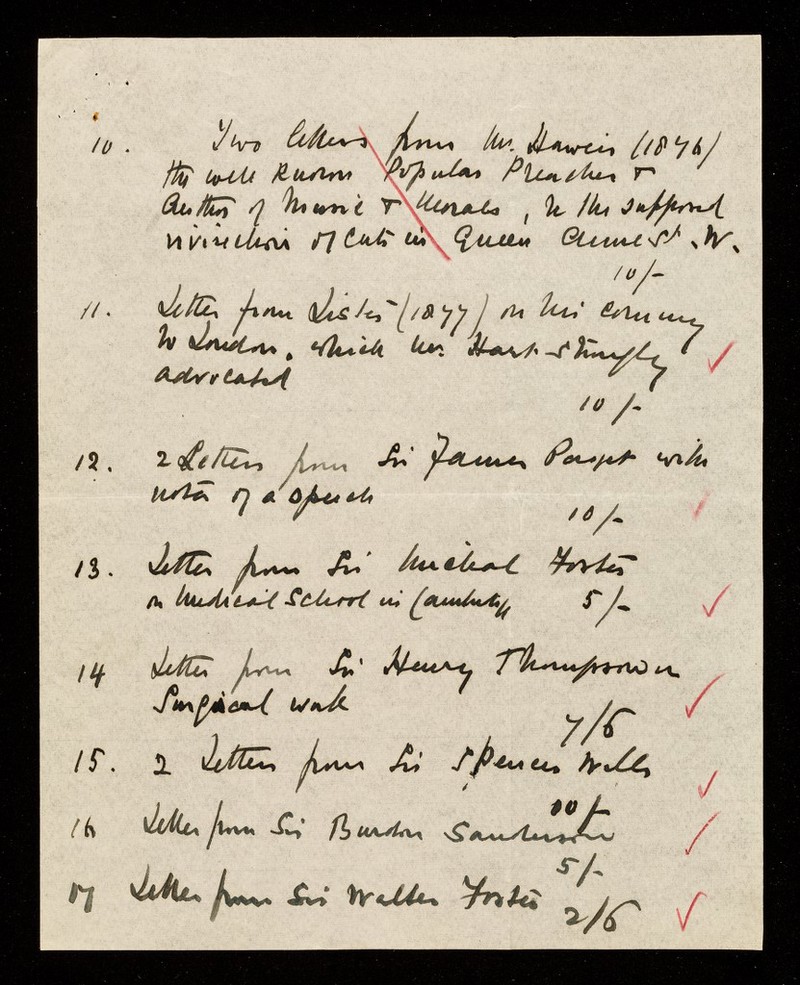 10. Two letters from Mr. Haweis (1876)
the well known Popular Preacher &
Author of Music & Morals, re the supposed
vivisection of Cats in Queen Anne St. W.
10/-
11. Letter from Lister (1877) on his coming
to London, which Mr. Hart strongly
advocated
10/-
12. 2 Letters from Sir James Paget with
notes of a speech
10/-
13. Letter from Sir Michael Foster
on Medical School in Cambridge 5/-
14 Letter from Sir Henry Thompson on
Surgical work
7/6
15. 2 Letters from Sir Spencer Wells
10/-
16 Letter from Sir Burdon Sanderson
5/-
17 Letter from Sir Walter Foster
2/6